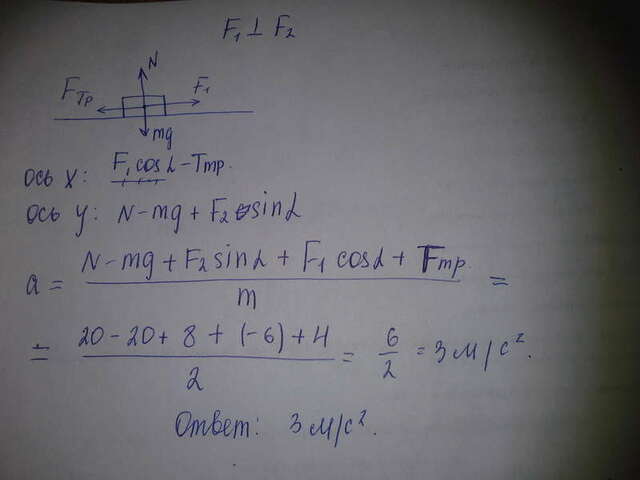 F₁ ⊥ F₂
N
Fтр
F₁
mg
ось x: F₁ cosα - Tтр.
ось y: N - mg + F₂ sinα
a = (N - mg + F₂ sinα + F₁ cosα + Fтр.) / m =
= (20 - 20 + 8 + (-6) + 4) / 2 = 6/2 = 3 м/с².
Ответ: 3 м/с².